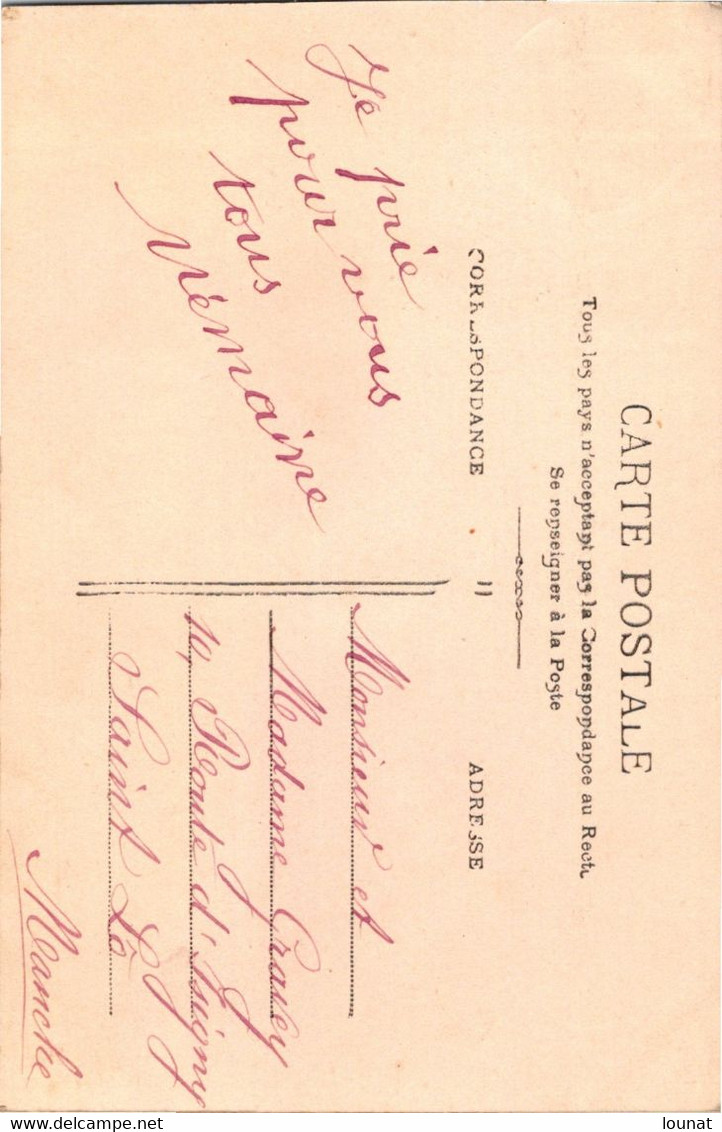 CARTE POSTALE
Tous les pays n'acceptant pas la Correspondance au Recto
Se renseigner à la Poste
CORRESPONDANCE
ADRESSE
Je prie
pour vous
tous
Monsieur et
Madame
10, Route d'Isigny
Saint Lô
Manche
© delcampe.net
lounat